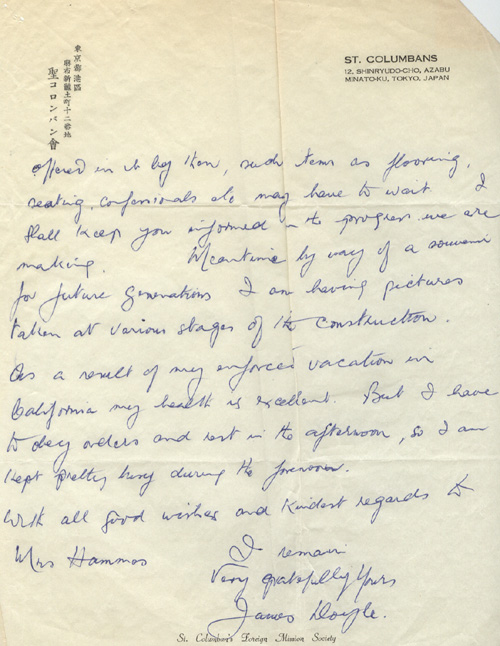 東京都港區
麻布新龍土町十二番地
聖コロンバン會
ST. COLUMBANS
12, SHINRYUDO-CHO, AZABU
MINATO-KU, TOKYO, JAPAN
offered in it by then, such items as flooring,
seating, confessionals etc may have to wait. I
shall keep you informed on the progress we are
making. Meantime by way of a souvenir
for future generations I am having pictures
taken at various stages of the construction.
As a result of my enforced vacation in
California my health is excellent. But I have
to obey orders and rest in the afternoon, so I am
kept pretty busy during the forenoon.
With all good wishes and kindest regards to
Mrs Hammos I remain
Very gratefully Yours
James Doyle.
St. Columban's Foreign Mission Society